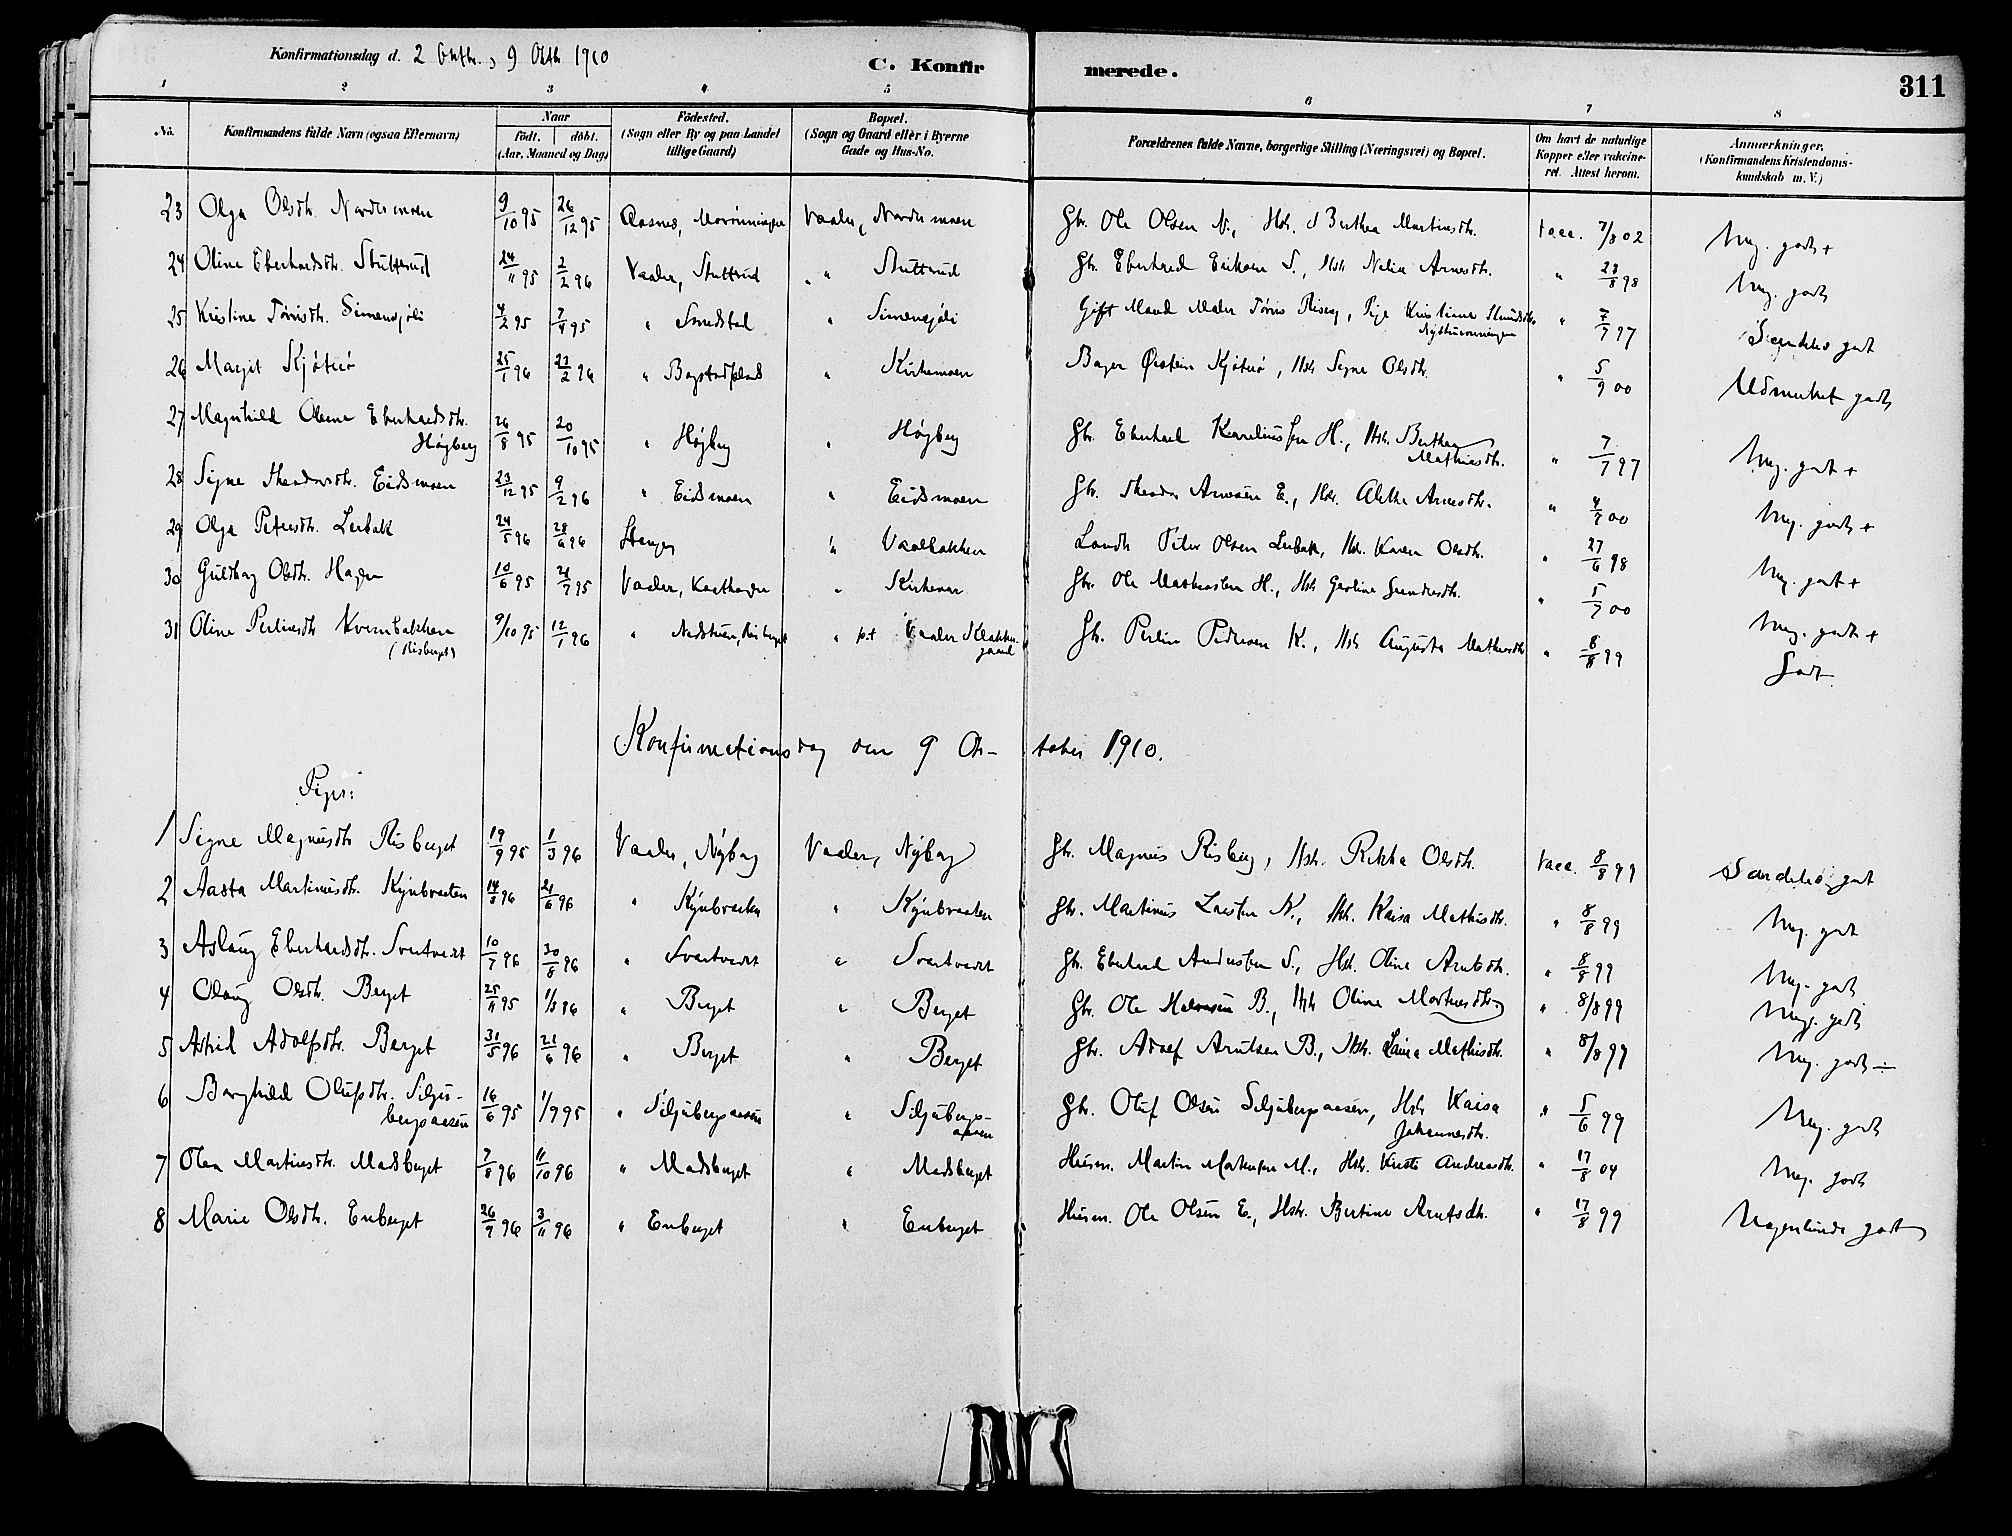 Konfirmationsdag d. 2 Oktbr., 9 Oktb 1910
C. Konfirmerede.
311
1 2 3 4 5 6 7 8
No.
Konfirmandens fulde Navn (ogsaa Efternavn)
Naar
født. døbt.
(Aar, Maaned og Dag)
Fødested.
(Sogn eller By og paa Landet
tillige Gaard)
Bopæl.
(Sogn og Gaard eller i Byerne
Gade og Hus-No.
Forældrenes fulde Navne, borgerlige Stilling (Næringsvei) og Bopæl.
Om havt de naturlige
Kopper eller vakcine-
ret. Attest herom.
Anmærkninger.
(Konfirmandens Kristendoms-
kundskab m. V.)
23 Olga Olsdtr. Nordsmoen 9/10 95 26/12 95 Aasnes, Vaaler, Nordsmoen Gbr. Ole Olsen N., Hstr. Berthea Martinsdtr. vacc. 7/8 02 Meg. godt +
24 Oline Eberhardsdtr. Stuttrud 24/11 95 2/2 96 Vaaler, Stuttrud " Stuttrud Gbr. Eberhard Eriksen S., Hstr Nelia Arnesdtr. " 23/8 98 Meg. godt
25 Kristine Tønisdtr. Simensjøli 4/2 95 7/4 95 " Smedstad " Simensjøli Gift Mand Maler Tønis Risberg, Pige Kristiane " 7/7 97 Særdeles godt
26 Margit Kjøterø 25/1 96 23/2 96 " Bogstadplads " Kirkemoen Bager Øistein Kjøterø, Hstr Signe Olsdtr. " 5/9 00 Udmerket godt
27 Magnhild Olene Eberhardsdtr.
Højberg 26/8 95 20/10 95 " Højberg " Højberg Gbr. Eberhard Kareliussen H., Hstr. Berthea
Mathiasdtr. " 7/7 97 Meg. godt +
28 Signe Theodorsdtr. Eidsmoen 23/12 95 9/2 96 " Eidsmoen " Eidsmoen Gbr. Theodor Arnesen E., Hstr. Alethe Arnesdtr. " 4/7 00 Meg. godt +
29 Olga Petersdtr. Lerbak 24/5 96 28/6 96 Stange " Vaalbakken Landh. Peter Olsen Lerbak, Hstr. Karen Olsdtr. " 27/6 98 Meg. godt +
30 Guldbag Olsdtr. Hagen 10/6 95 21/7 95 Vaaler, " Kirkemoen Gbr. Ole Mathiassen H., Hstr Gundersdtr. " 5/7 00 Meg. godt +
31 Oline Perlinesdtr Kvernbakken
(Risberget) 9/10 95 12/1 96 " " p.t Vaaler Klokker-
gaard Gbr. Perlin Pedersen K., Hstr Augusta Mathiesdtr " 8/8 99 Godt
Konfirmationsdag den 9 Oktober 1910.
Piger:
1 Signe Magnusdtr Risberget 19/9 95 1/3 96 Vaaler, Nyberg Vaaler, Nyberg Gbr. Magnus Risberg, Hstr. Rikka Olsdtr. vacc. 8/8 99 Særdeles godt
2 Aasta Martinusdtr. Kynbraaten 14/3 96 21/6 96 " Kynbraaten " Kynbraaten Gbr. Martinus Larsen K., Hstr. Kaisa Mathisdtr. " 8/8 99 Meg. godt
3 Aslaug Eberhardsdtr. Svartvedt 10/7 96 30/8 96 " Svartvedt " Svartvedt Gbr. Eberhard Andersen S., Hstr. Oline Arntsdtr. " 8/8 99 Meg. godt
4 Olaug Olsdtr. Berget 25/11 95 1/3 96 " Berget " Berget Gbr. Ole Halvorsen B., Hstr Oline Martinsdtr. " 8/8 99 Meg. godt
5 Astrid Adolfsdtr. Berget 31/5 96 21/6 96 " Berget " Berget Gbr. Adolf Arntsen B., Hstr. Laura Mathisdtr. " 8/8 99 Meg. godt ÷
6 Borghild Olufsdtr. Silju-
bergaasen 16/6 95 1/9 95 " Siljubergaasen " Siljuberg-
aasen Gbr. Oluf Olsen Siljubergaasen, Hstr Kaisa
Johannesdtr. " 5/6 99 Meg. godt
7 Olea Martinsdtr. Madsberget 7/8 96 11/10 96 " Madsberget " Madsberget Husm. Martin Mortensen M., Hstr. Kirsti Andreasdtr. " 17/8 04 Meg. godt
8 Marie Olsdtr. Enberget 26/9 96 3/11 96 " Enberget " Enberget Husm. Ole Olsen E., Hstr. Bertine Arntsdtr. " 17/8 99 Nogenlunde godt